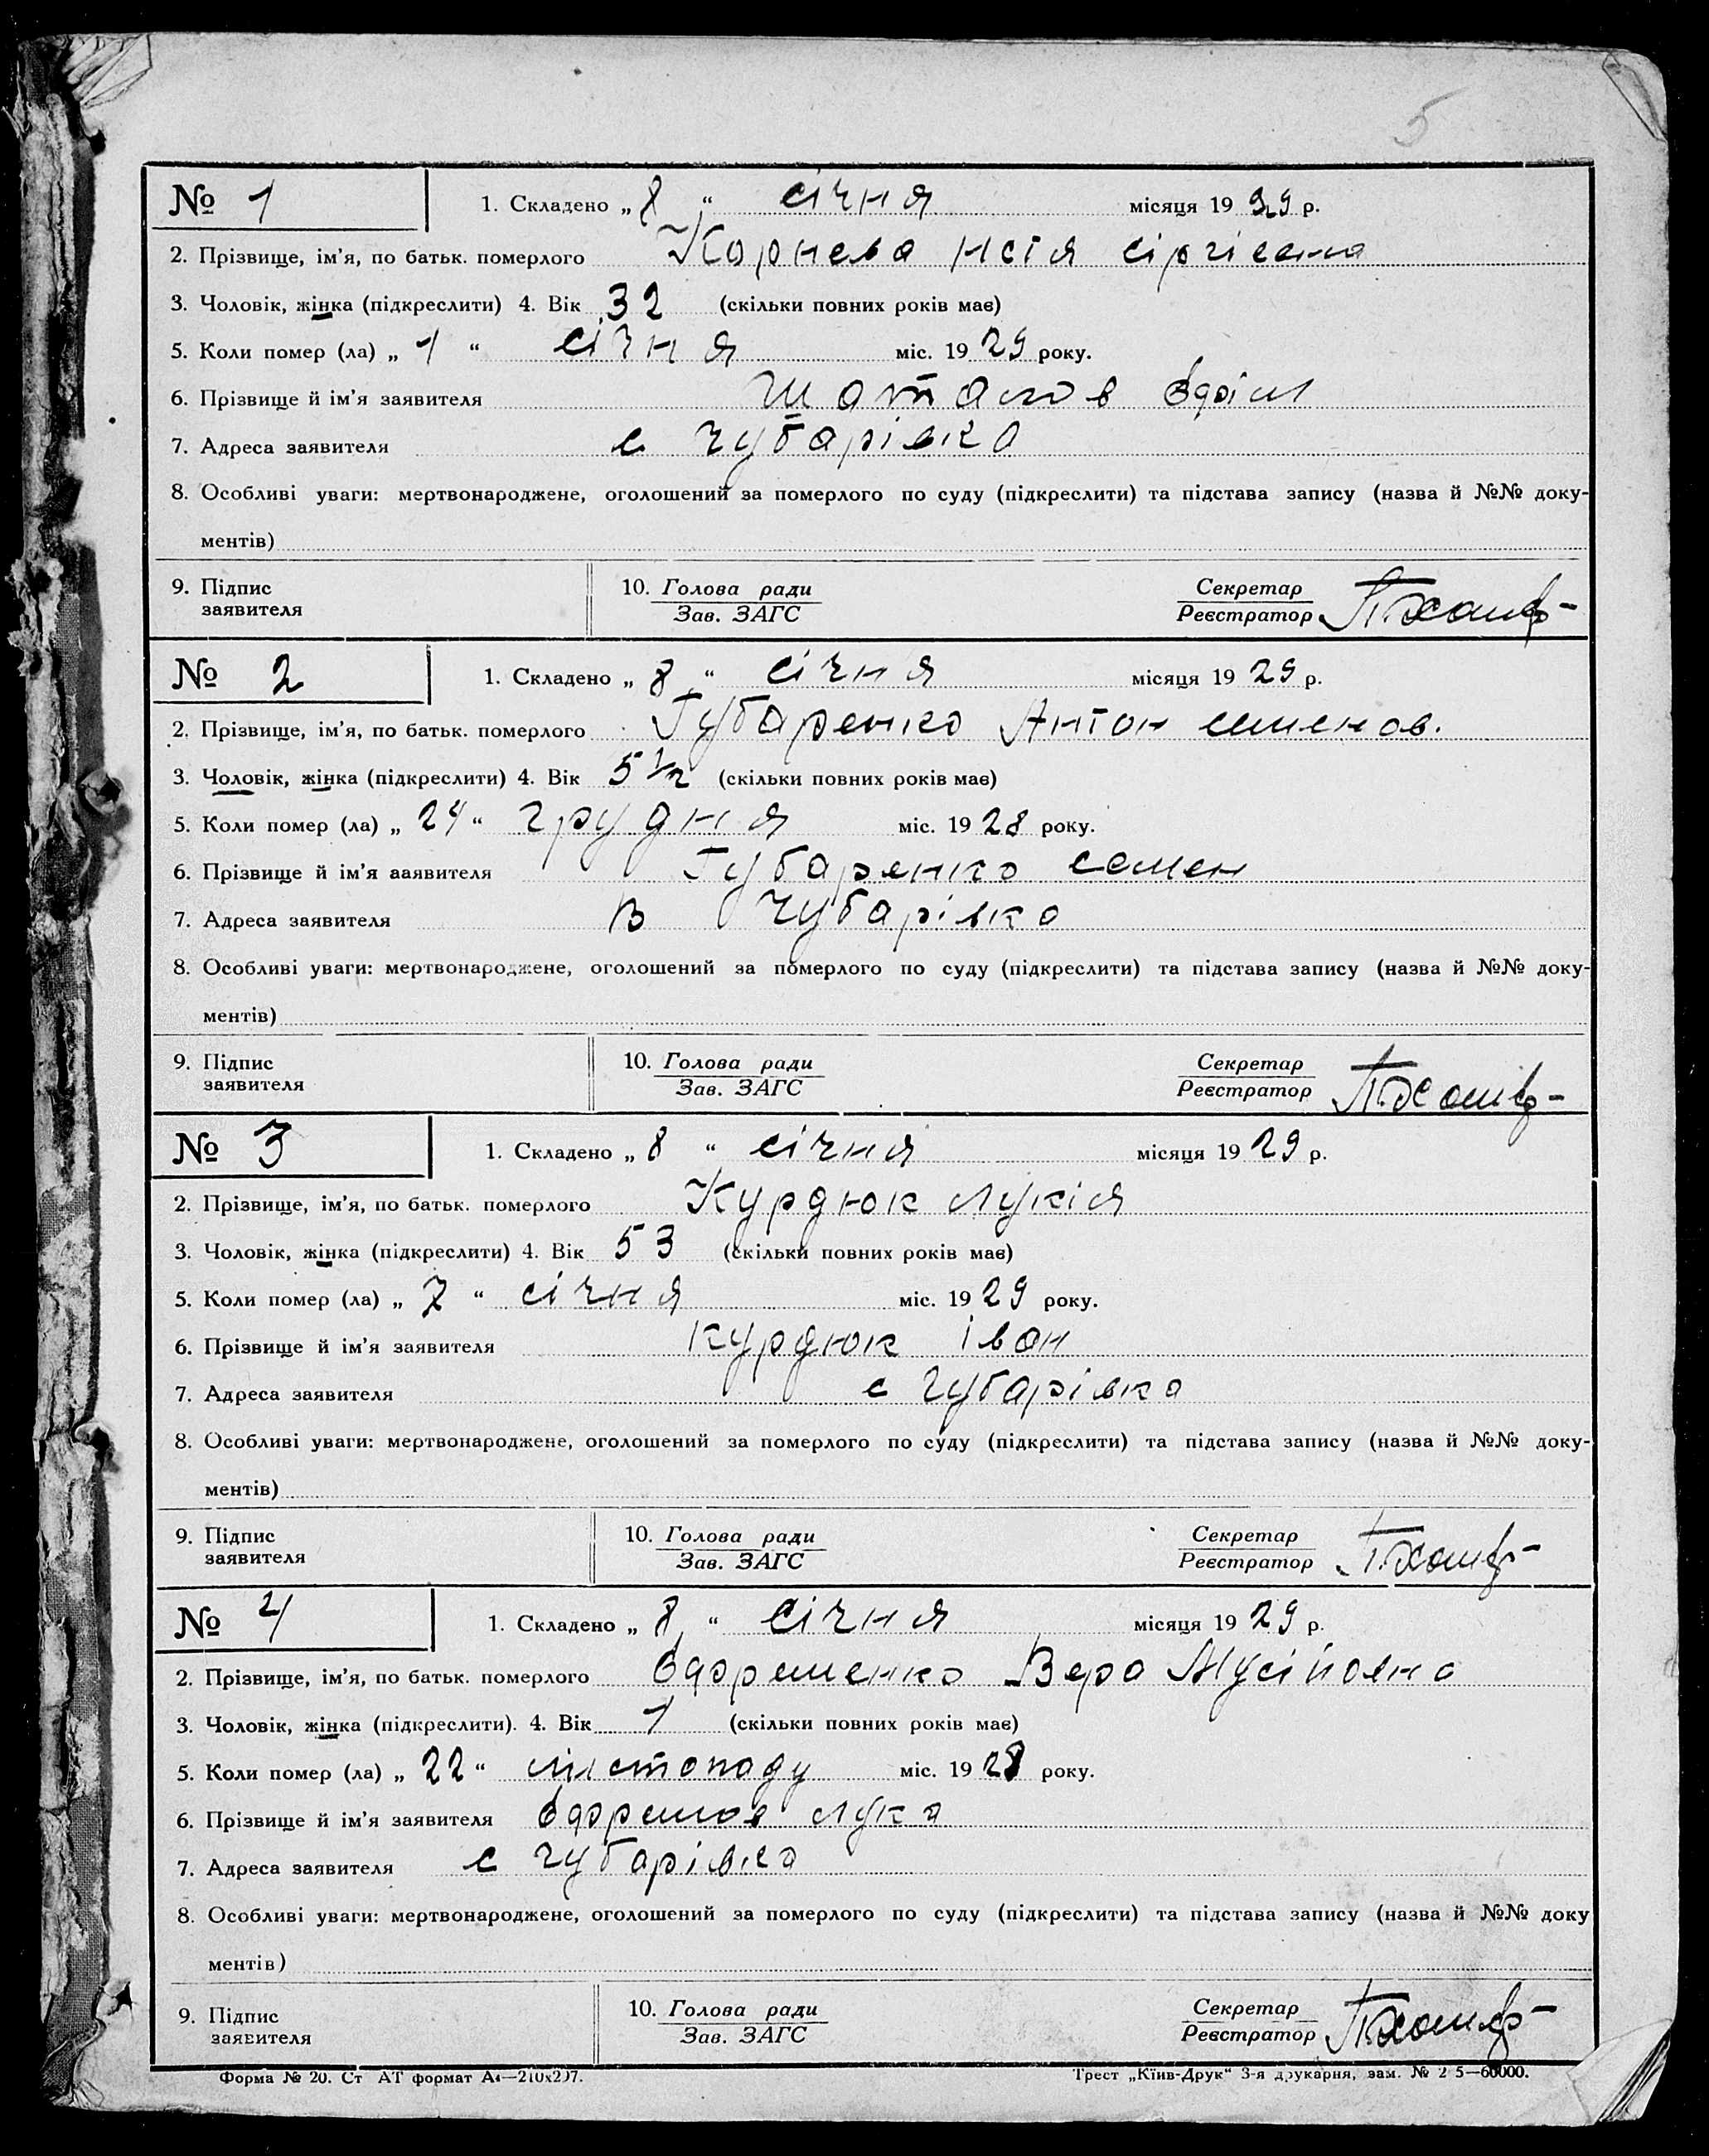 5
№ 1 1. Складено „ 8 “ січня місяця 19 29 р.
2. Прізвище, ім'я, по батьк. померлого Корнева
3. Чоловік, жінка (підкреслити) 4. Вік 32 (скільки повних років має)
5. Коли помер (ла) „ 1 “ січня міс. 19 29 року.
6. Прізвище й ім'я заявителя Шаталов
7. Адреса заявителя с Чубарівка
8. Особливі уваги: мертвонароджене, оголошений за померлого по суду (підкреслити) та підстава запису (назва й №№ доку-
ментів)
9. Підпис 10. Голова ради Секретар
заявителя Зав. ЗАГС Реєстратор
№ 2 1. Складено „ 8 “ січня місяця 19 29 р.
2. Прізвище, ім'я, по батьк. померлого Губаренко Антон семенов.
3. Чоловік, жінка (підкреслити) 4. Вік 5 1/2 (скільки повних років має)
5. Коли помер (ла) „ 24 “ грудня міс. 19 28 року.
6. Прізвище й ім'я ааявителя Губаренко семен
7. Адреса заявителя В Чубарівка
8. Особливі уваги: мертвонароджене, оголошений за померлого по суду (підкреслити) та підстава запису (назва й №№ доку-
ментів)
9. Підпис 10. Голова ради Секретар
заявителя Зав. ЗАГС Реєстратор
№ 3 1. Складено „ 8 “ січня місяця 19 29 р.
2. Прізвище, ім'я, по батьк. померлого Курдюк лукія
3. Чоловік, жінка (підкреслити) 4. Вік 53 (скільки повних років має)
5. Коли помер (ла) „ 7 “ січня міс. 19 29 року.
6. Прізвище й ім'я заявителя курдюк іван
7. Адреса заявителя с Чубарівка
8. Особливі уваги: мертвонароджене, оголошений за померлого по суду (підкреслити) та підстава запису (назва й №№ доку-
ментів)
9. Підпис 10. Голова ради Секретар
заявителя Зав. ЗАГС Реєстратор
№ 4 1. Складено „ 8 “ січня місяця 19 29 р.
2. Прізвище, ім'я, по батьк. померлого Єфременко Вера Мусійовна
3. Чоловік, жінка (підкреслити). 4. Вік 1 (скільки повних років має)
5. Коли помер (ла) „ 22 “ листопаду міс. 19 28 року.
6. Прізвище й ім'я заявителя Єфремов лука
7. Адреса заявителя с Чубарівка
8. Особливі уваги: мертвонароджене, оголошений за померлого по суду (підкреслити) та підстава запису (назва й №№ доку
ментів)
9. Підпис 10. Голова ради Секретар
заявителя Зав. ЗАГС Реєстратор
Форма № 20. Ст АТ формат А4—210х297. Трест „Київ-Друк“ 3-я друкарня, зам. № 2 5—60000.